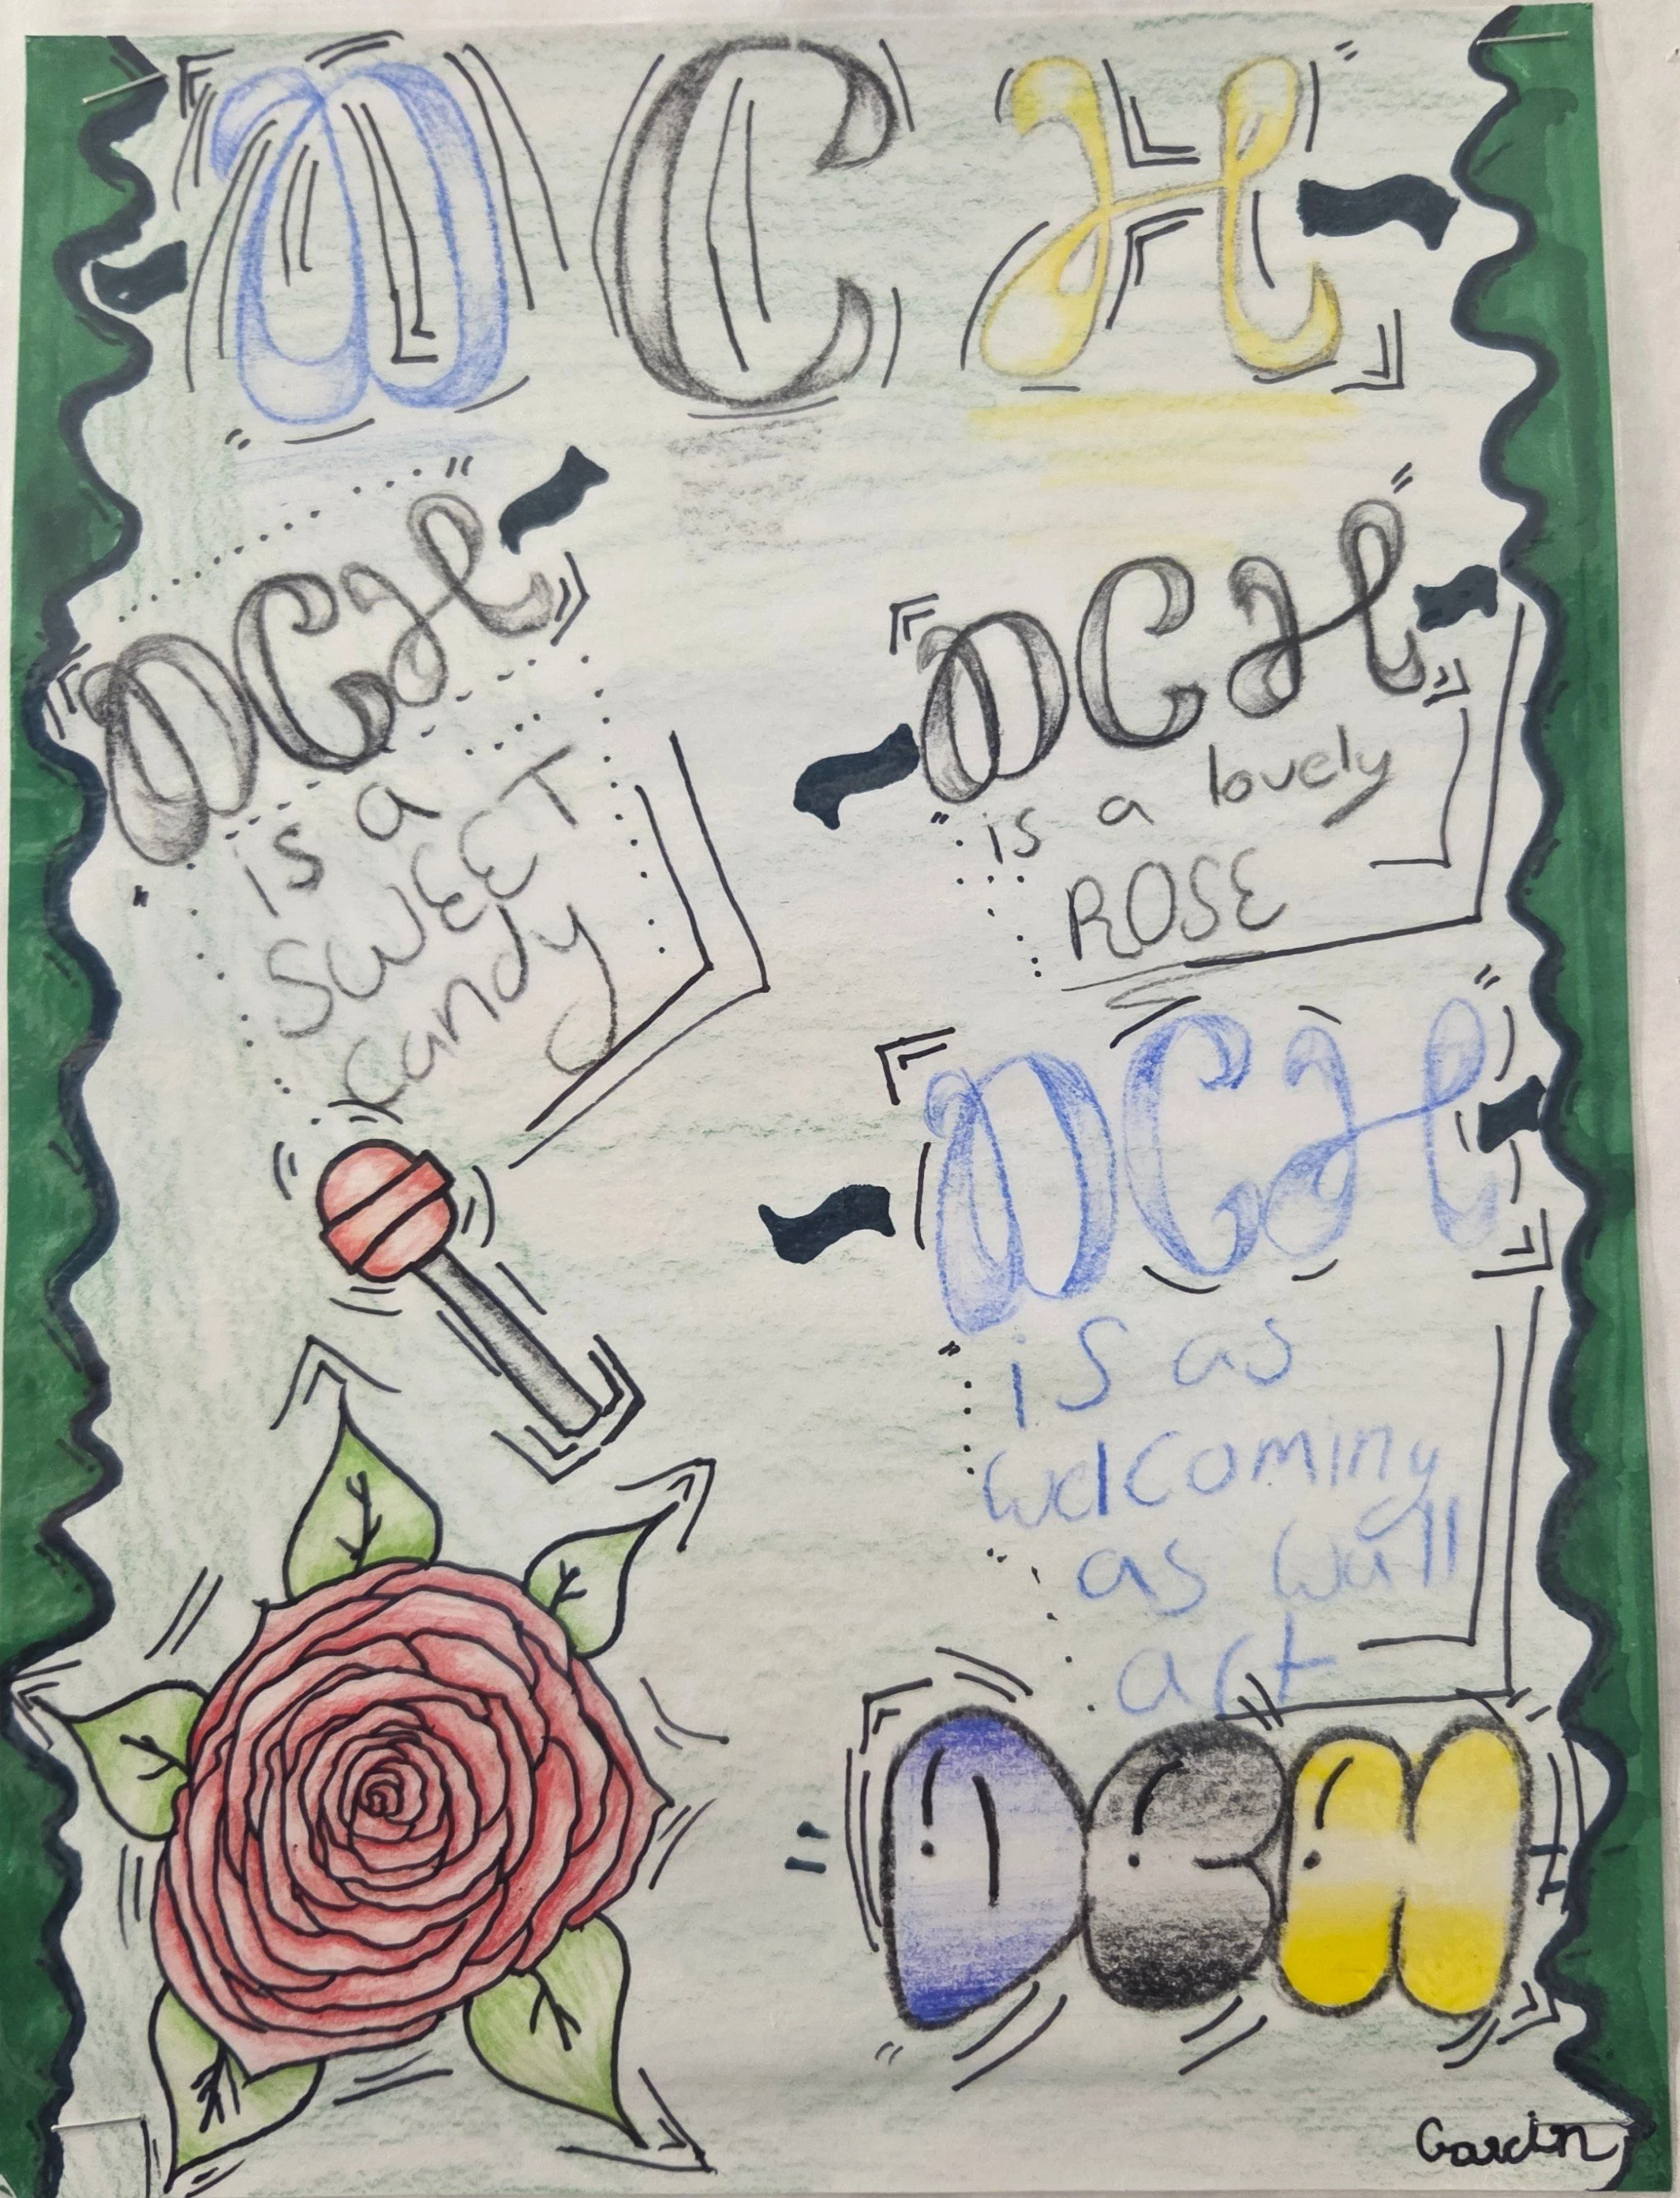 DCH
DCH
is a
SWEET
candy
DCH
is a lovely
ROSE
DCH
is as
welcoming
as wall
art
DCH